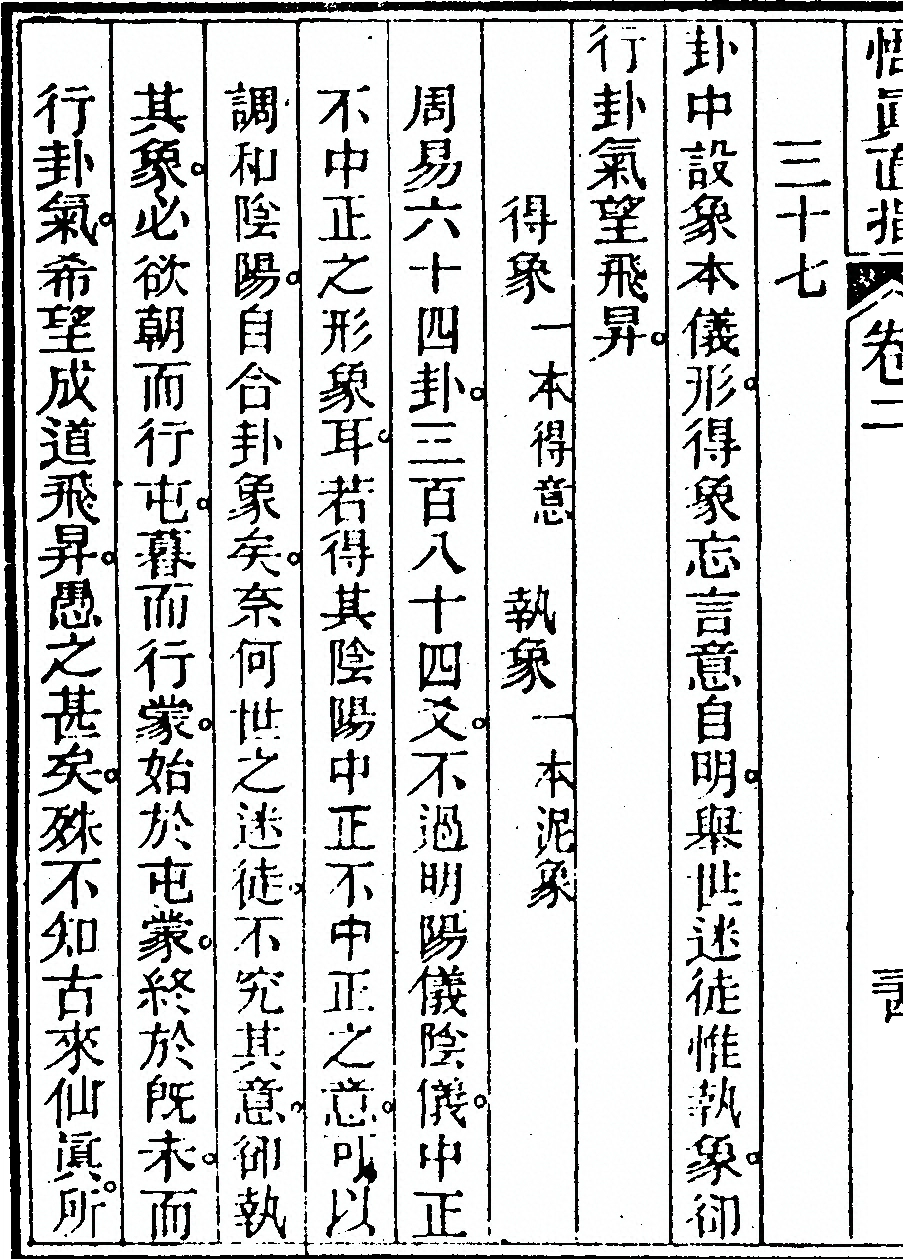 悟真直指 卷二
三十七
卦中設象本儀形得象忘言意自明舉世迷徒惟執象卻
行卦氣望飛昇
得象一本得意 執象一本泥象
周易六十四卦三百八十四爻不過明陽儀陰儀中正
不中正之形象耳若得其陰陽中正不中正之意可以
調和陰陽自合卦象矣奈何世之迷徒不究其意卻執
其象必欲朝而行屯暮而行蒙始於屯蒙終於既未而
行卦氣希望成道飛昇愚之甚矣殊不知古來仙眞所